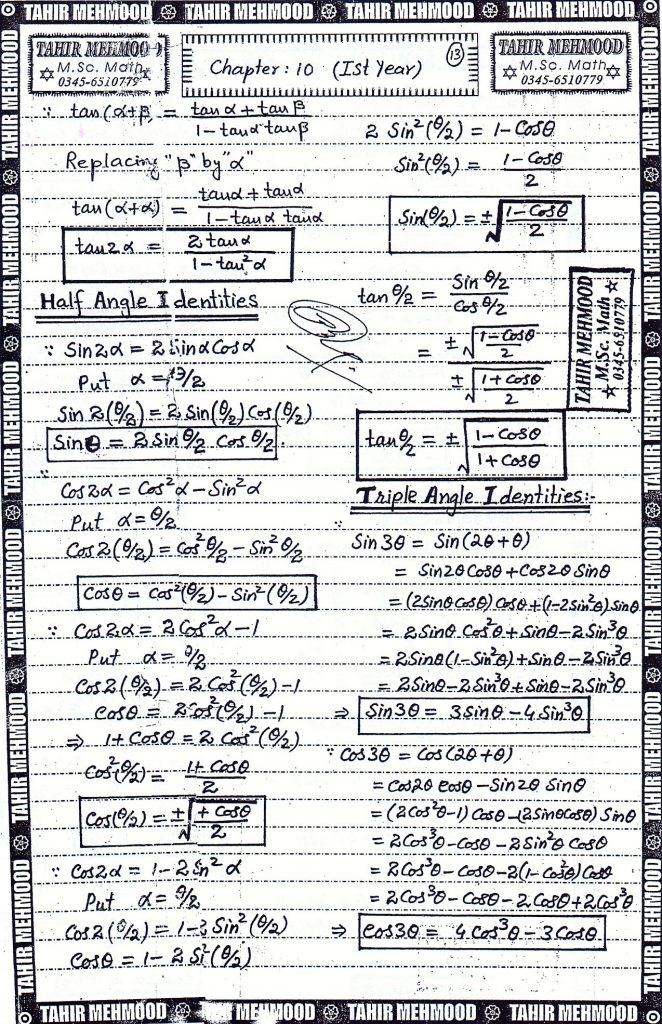 TAHIR MEHMOOD TAHIR MEHMOOD TAHIR MEHMOOD TAHIR MEHMOOD
TAHIR MEHMOOD
M.Sc. Math
0345-6510779
Chapter: 10 (Ist Year)
13
TAHIR MEHMOOD
M.Sc. Math
0345-6510779
∵ tan(α+β = tanα + tanβ / 1 - tanα tanβ
Replacing "β" by "α"
tan(α+α) = tanα + tanα / 1 - tanα tanα
tan2α = 2 tanα / 1 - tan²α
Half Angle Identities
∵ Sin2α = 2 Sinα Cosα
Put α = θ/2
Sin 2(θ/2) = 2 Sin(θ/2) Cos(θ/2)
Sinθ = 2 Sin θ/2 Cos θ/2.
∵
Cos2α = Cos²α - Sin²α
Put α = θ/2
Cos 2(θ/2) = Cos² θ/2 - Sin² θ/2
Cosθ = Cos²(θ/2) - Sin²(θ/2)
∵ Cos2α = 2 Cos²α - 1
Put α = θ/2
Cos 2(θ/2) = 2 Cos²(θ/2) - 1
Cosθ = 2 Cos²(θ/2) - 1
⇒ 1 + Cosθ = 2 Cos²(θ/2)
Cos²(θ/2) = 1 + Cosθ / 2
Cos(θ/2) = ± √( + Cosθ / 2)
∵ Cos2α = 1 - 2 Sin²α
Put α = θ/2
Cos 2(θ/2) = 1 - 2 Sin²(θ/2)
Cosθ = 1 - 2 Si²(θ/2)
2 Sin²(θ/2) = 1 - Cosθ
Sin²(θ/2) = 1 - Cosθ / 2
Sin(θ/2) = ± √(1 - Cosθ / 2)
tan θ/2 = Sin θ/2 / Cos θ/2
= ± √(1 - Cosθ / 2) / ± √(1 + Cosθ / 2)
TAHIR MEHMOOD
M.Sc. Math
0345-6510779
tan θ/2 = ± √(1 - Cosθ / 1 + Cosθ)
Triple Angle Identities:-
∵
Sin 3θ = Sin(2θ + θ)
= Sin2θ Cosθ + Cos2θ Sinθ
= (2Sinθ Cosθ) Cosθ + (1-2Sin²θ) Sinθ
= 2 Sinθ Cos²θ + Sinθ - 2 Sin³θ
= 2 Sinθ (1 - Sin²θ) + Sinθ - 2 Sin³θ
= 2 Sinθ - 2 Sin³θ + Sinθ - 2 Sin³θ
⇒ Sin3θ = 3 Sinθ - 4 Sin³θ
∵ Cos3θ = Cos(2θ + θ)
= Cos2θ Cosθ - Sin2θ Sinθ
= (2Cos²θ - 1) Cosθ - (2Sinθ Cosθ) Sinθ
= 2 Cos³θ - Cosθ - 2 Sin²θ Cosθ
= 2 Cos³θ - Cosθ - 2(1 - Cos²θ) Cosθ
= 2 Cos³θ - Cosθ - 2 Cosθ + 2 Cos³θ
⇒ Cos3θ = 4 Cos³θ - 3 Cosθ
TAHIR MEHMOOD TAHIR MEHMOOD TAHIR MEHMOOD TAHIR MEHMOOD TAHIR MEHMOOD TAHIR MEHMOOD
TAHIR MEHMOOD TAHIR MEHMOOD TAHIR MEHMOOD TAHIR MEHMOOD TAHIR MEHMOOD TAHIR MEHMOOD
TAHIR MEHMOOD MEHMOOD TAHIR MEHMOOD TAHIR MEHMOOD